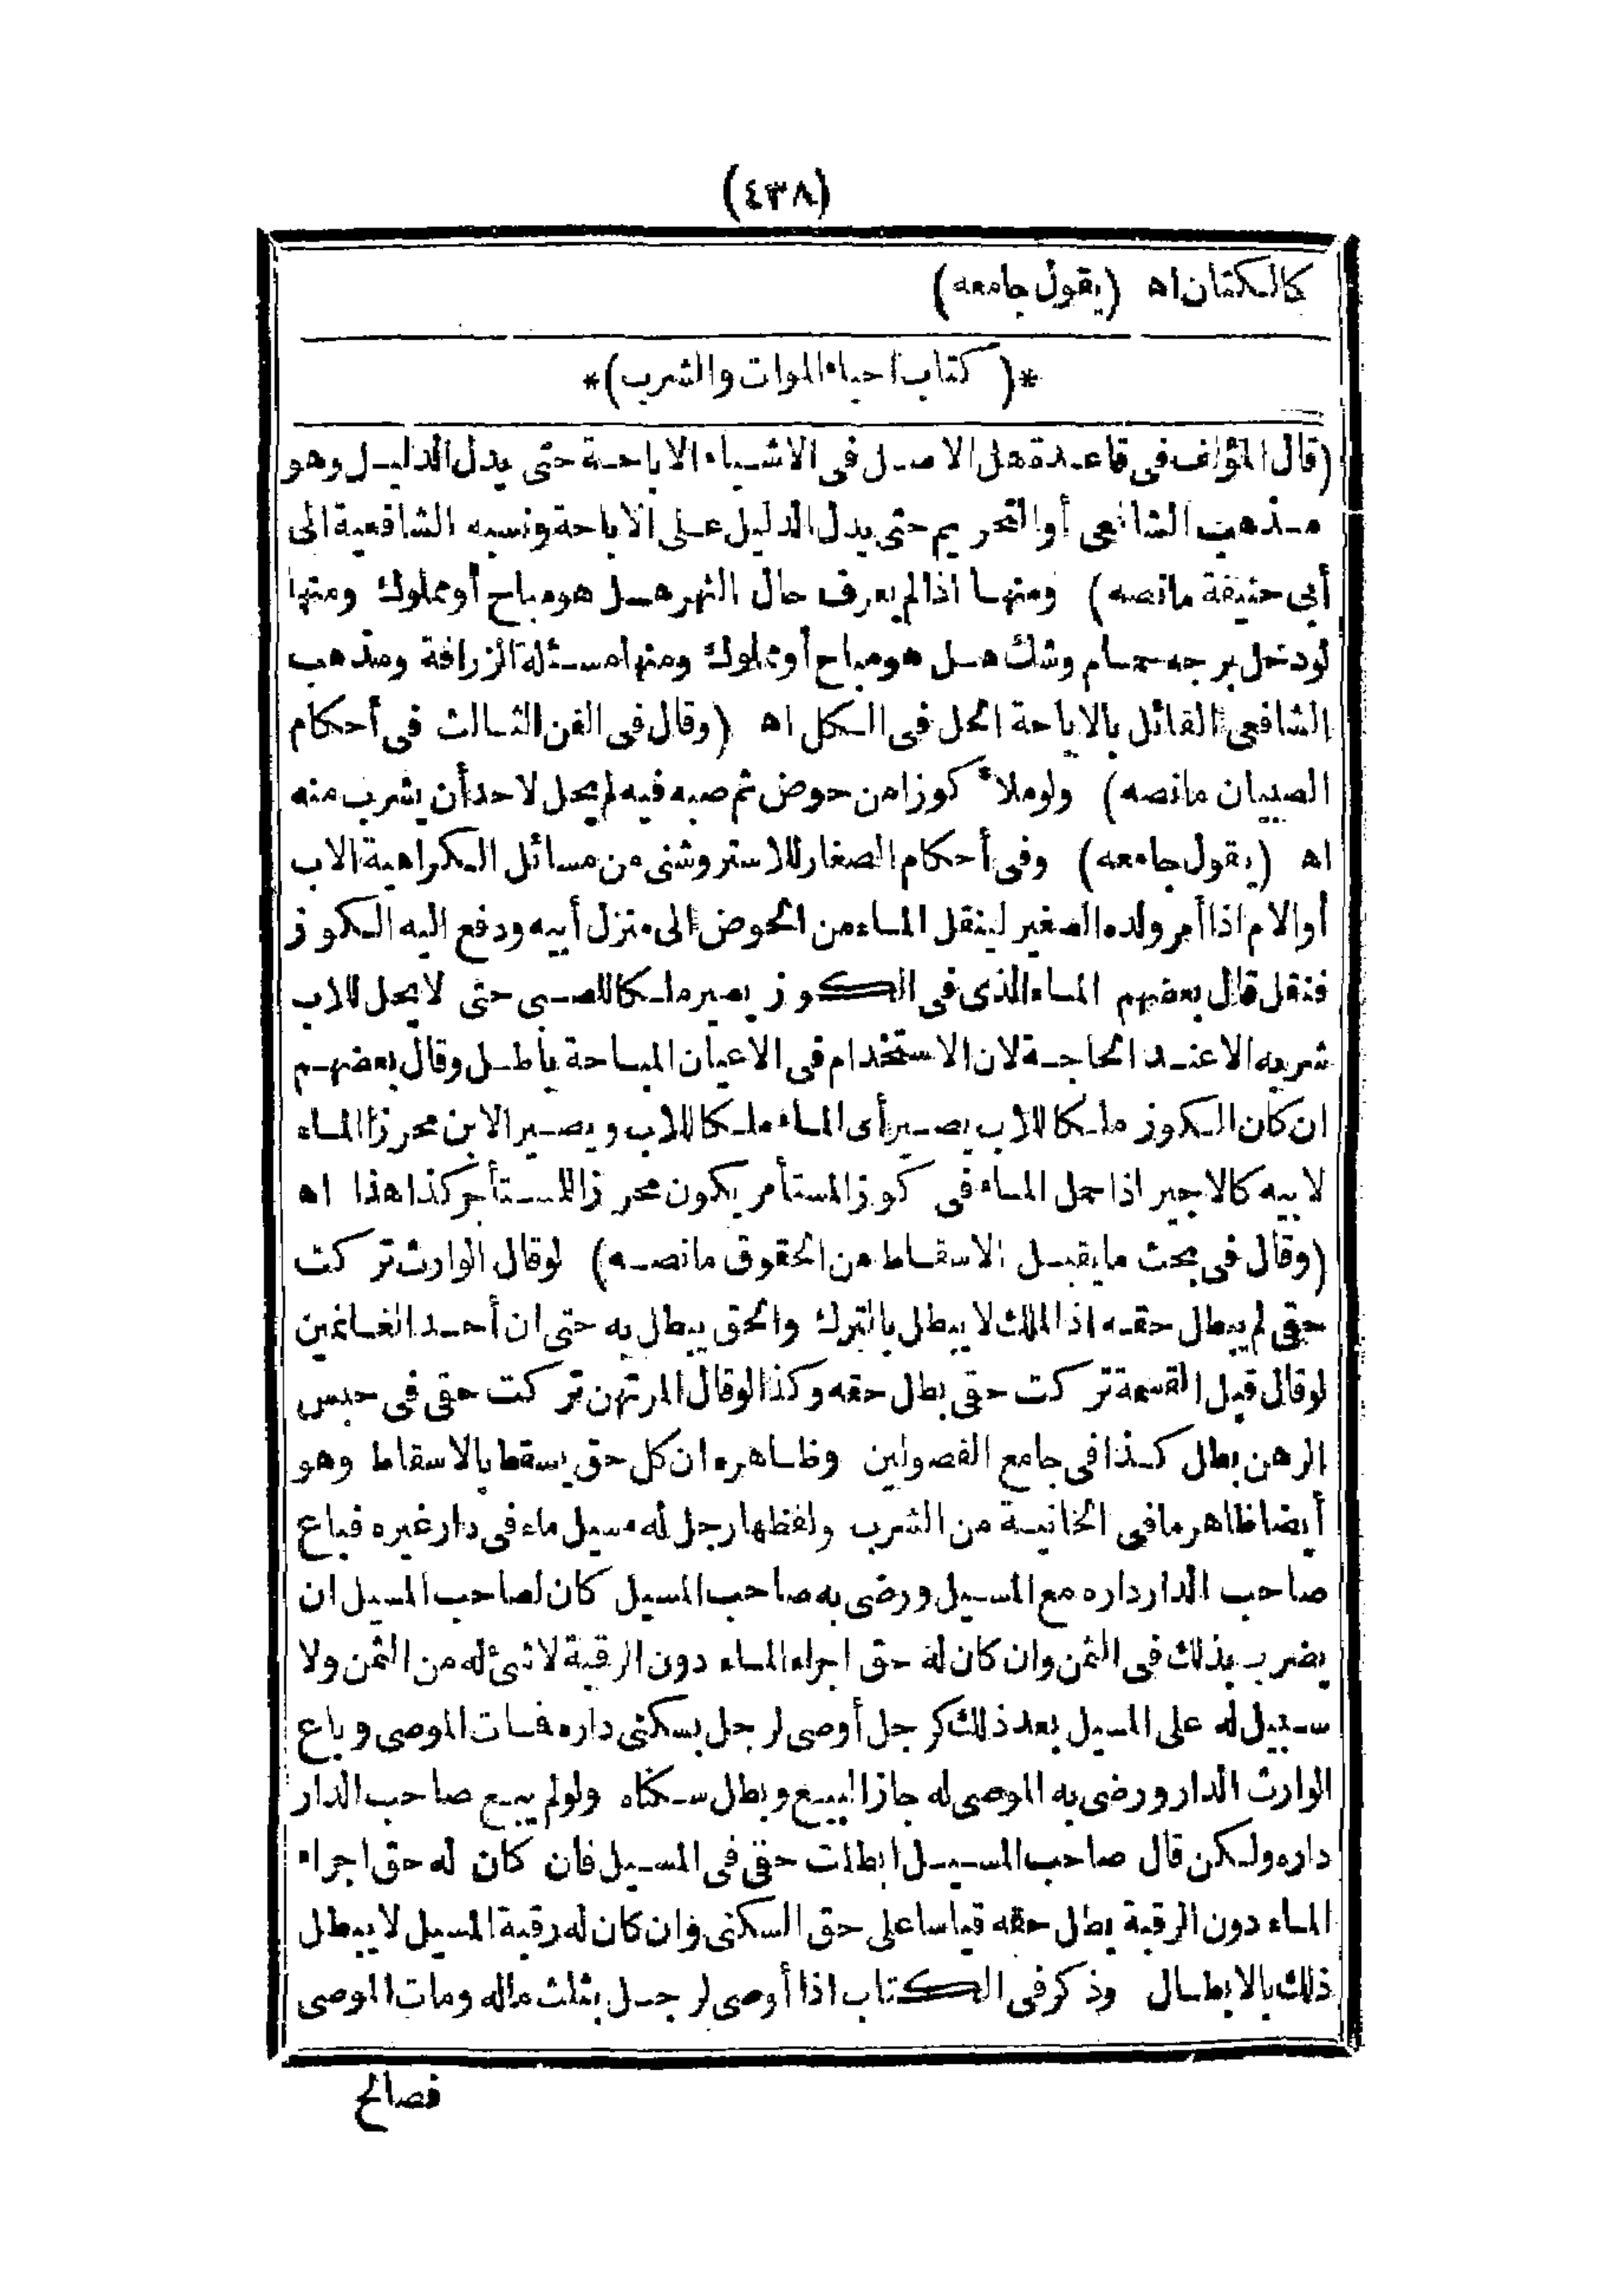 (٤٣٨)
كالكتان اه (يقول جامعه)
*(كتاب احياء الموات والشرب)*
(قال المؤلف فى قاعدة هل الاصل فى الاشياء الاباحة حتى يدل الدليل وهو
مذهب الشافعى أو التحريم حتى يدل الدليل على الاباحة ونسبه الشافعية الى
أبى حنيفة مانصه) ومنها اذا لم يعرف حال النهر هل هو مباح أو مملوك ومنها
لو دخل برجه حمام وشك هل هو مباح أو مملوك ومنها مسئلة الزرافة ومذهب
الشافعى القائل بالاباحة الحل فى الكل اه (وقال فى الفن الثالث فى أحكام
الصبيان مانصه) ولو ملأ كوزا من حوض ثم صبه فيه لم يحل لاحد أن يشرب منه
اه (يقول جامعه) وفى أحكام الصغار للاستروشنى من مسائل الكراهية الاب
أو الام اذا أمر ولده الصغير لينقل الماء من الحوض الى منزل أبيه ودفع اليه الكوز
فنقل قال بعضهم الماء الذى فى الكوز يصير ملكا للصبى حتى لا يحل للاب
شربه الا عند الحاجة لان الاستخدام فى الاعيان المباحة باطل وقال بعضهم
ان كان الكوز ملكا للاب يصير أى الماء ملكا للاب ويصير الابن محرزا الماء
لابيه كالاجير اذا حمل الماء فى كوز المستأمر يكون محرزا للمستأجر كذا هذا اه
(وقال فى بحث ما يقبل الاسقاط من الحقوق مانصه) لو قال الوارث تركت
حقى لم يبطل حقه اذ الملك لا يبطل بالترك والحق يبطل به حتى ان أحد الغانمين
لو قال قبل القسمة تركت حقى بطل حقه وكذا لو قال المرتهن تركت حقى فى حبس
الرهن بطل كذا فى جامع الفصولين وظاهره ان كل حق يسقط بالاسقاط وهو
أيضا ظاهر ما فى الخانية من الشرب ولفظها رجل له مسيل ماء فى دار غيره فباع
صاحب الدار داره مع المسيل ورضى به صاحب المسيل كان لصاحب المسيل ان
يضرب بذلك فى الثمن وان كان له حق اجراء الماء دون الرقبة لا شئ له من الثمن ولا
سبيل له على المسيل بعد ذلك كرجل أوصى لرجل بسكنى داره فمات الموصى وباع
الوارث الدار ورضى به الموصى له جاز البيع وبطل سكناه ولو لم يبع صاحب الدار
داره ولكن قال صاحب المسيل ابطلت حقى فى المسيل فان كان له حق اجراء
الماء دون الرقبة بطل حقه قياسا على حق السكنى وان كان له رقبة المسيل لا يبطل
ذلك بالابطال وذكر فى الكتاب اذا أوصى لرجل بثلث ماله ومات الموصى
فصالح